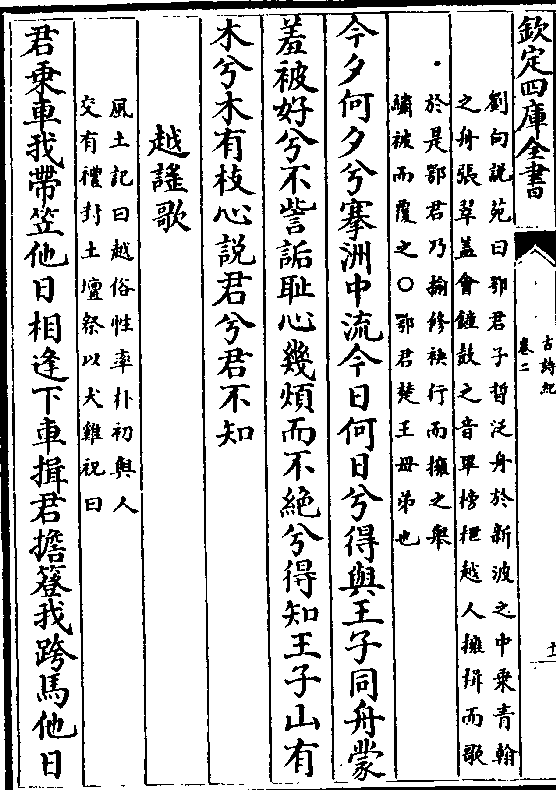 欽定四庫全書
古詩紀
卷二
劉向說苑曰鄂君子晳泛舟於新波之中乗青翰
之舟張翠葢會鐘鼓之音畢榜枻越人擁楫而歌
於是鄂君乃揄修袂行而擁之舉
繡被而覆之○鄂君楚王母弟也
今夕何夕兮搴洲中流今日何日兮得與王子同舟蒙
羞被好兮不訾詬恥心幾煩而不絕兮得知王子山有
木兮木有枝心説君兮君不知
越謠歌
風土記曰越俗性率朴初與人
交有禮封土壇祭以犬雞祝曰
君乗車我帶笠他日相逢下車揖君擔簦我跨馬他日